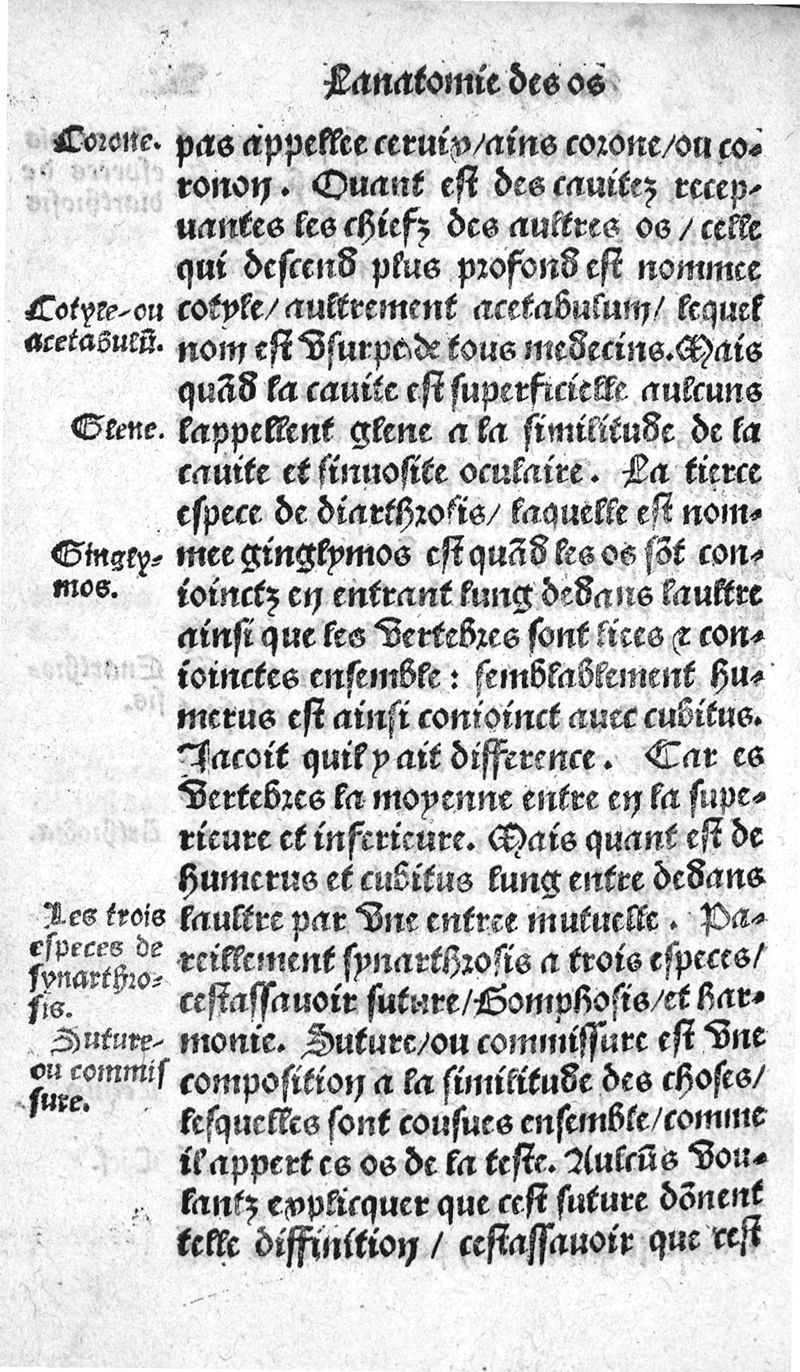 Lanatomie des os
Corone.
pas appellee ceruix/ains corone/ou co-
ronon. Quant est des cauitez recep-
uantes les chiefz des aultres os/celle
qui descend plus profond est nommee
Cotyle-ou
acetabulū.
cotyle/aultrement acetabulum/ lequel
nom est vsurpe de tous medecins. Mais
quād la cauite est superficielle aulcuns
Glene.
lappellent glene a la similitude de la
cauite et sinuosite oculaire. La tierce
espece de diarthrosis/ laquelle est nom-
Gingly-
mos.
mee ginglymos est quād les os sōt con-
ioinctz en entrant lung dedans laultre
ainsi que les vertebres sont liees & con-
ioinctes ensemble: semblablement hu-
merus est ainsi conioinct auec cubitus.
Jacoit quil y ait difference. Car es
vertebres la moyenne entre en la supe-
rieure et inferieure. Mais quant est de
humerus et cubitus lung entre dedans
Les trois
especes de
synarthro-
sis.
laultre par vne entree mutuelle. Pa-
reillement synarthrosis a trois especes/
cestassauoir suture/Gomphosis/et har-
Suture-
ou commis
sure.
monie. Suture/ou commissure est vne
composition a la similitude des choses/
lesquelles sont cousues ensemble/comme
il appert es os de la teste. Aulcūs vou-
lantz explicquer que cest suture dōnent
telle diffinition / cestassauoir que cest